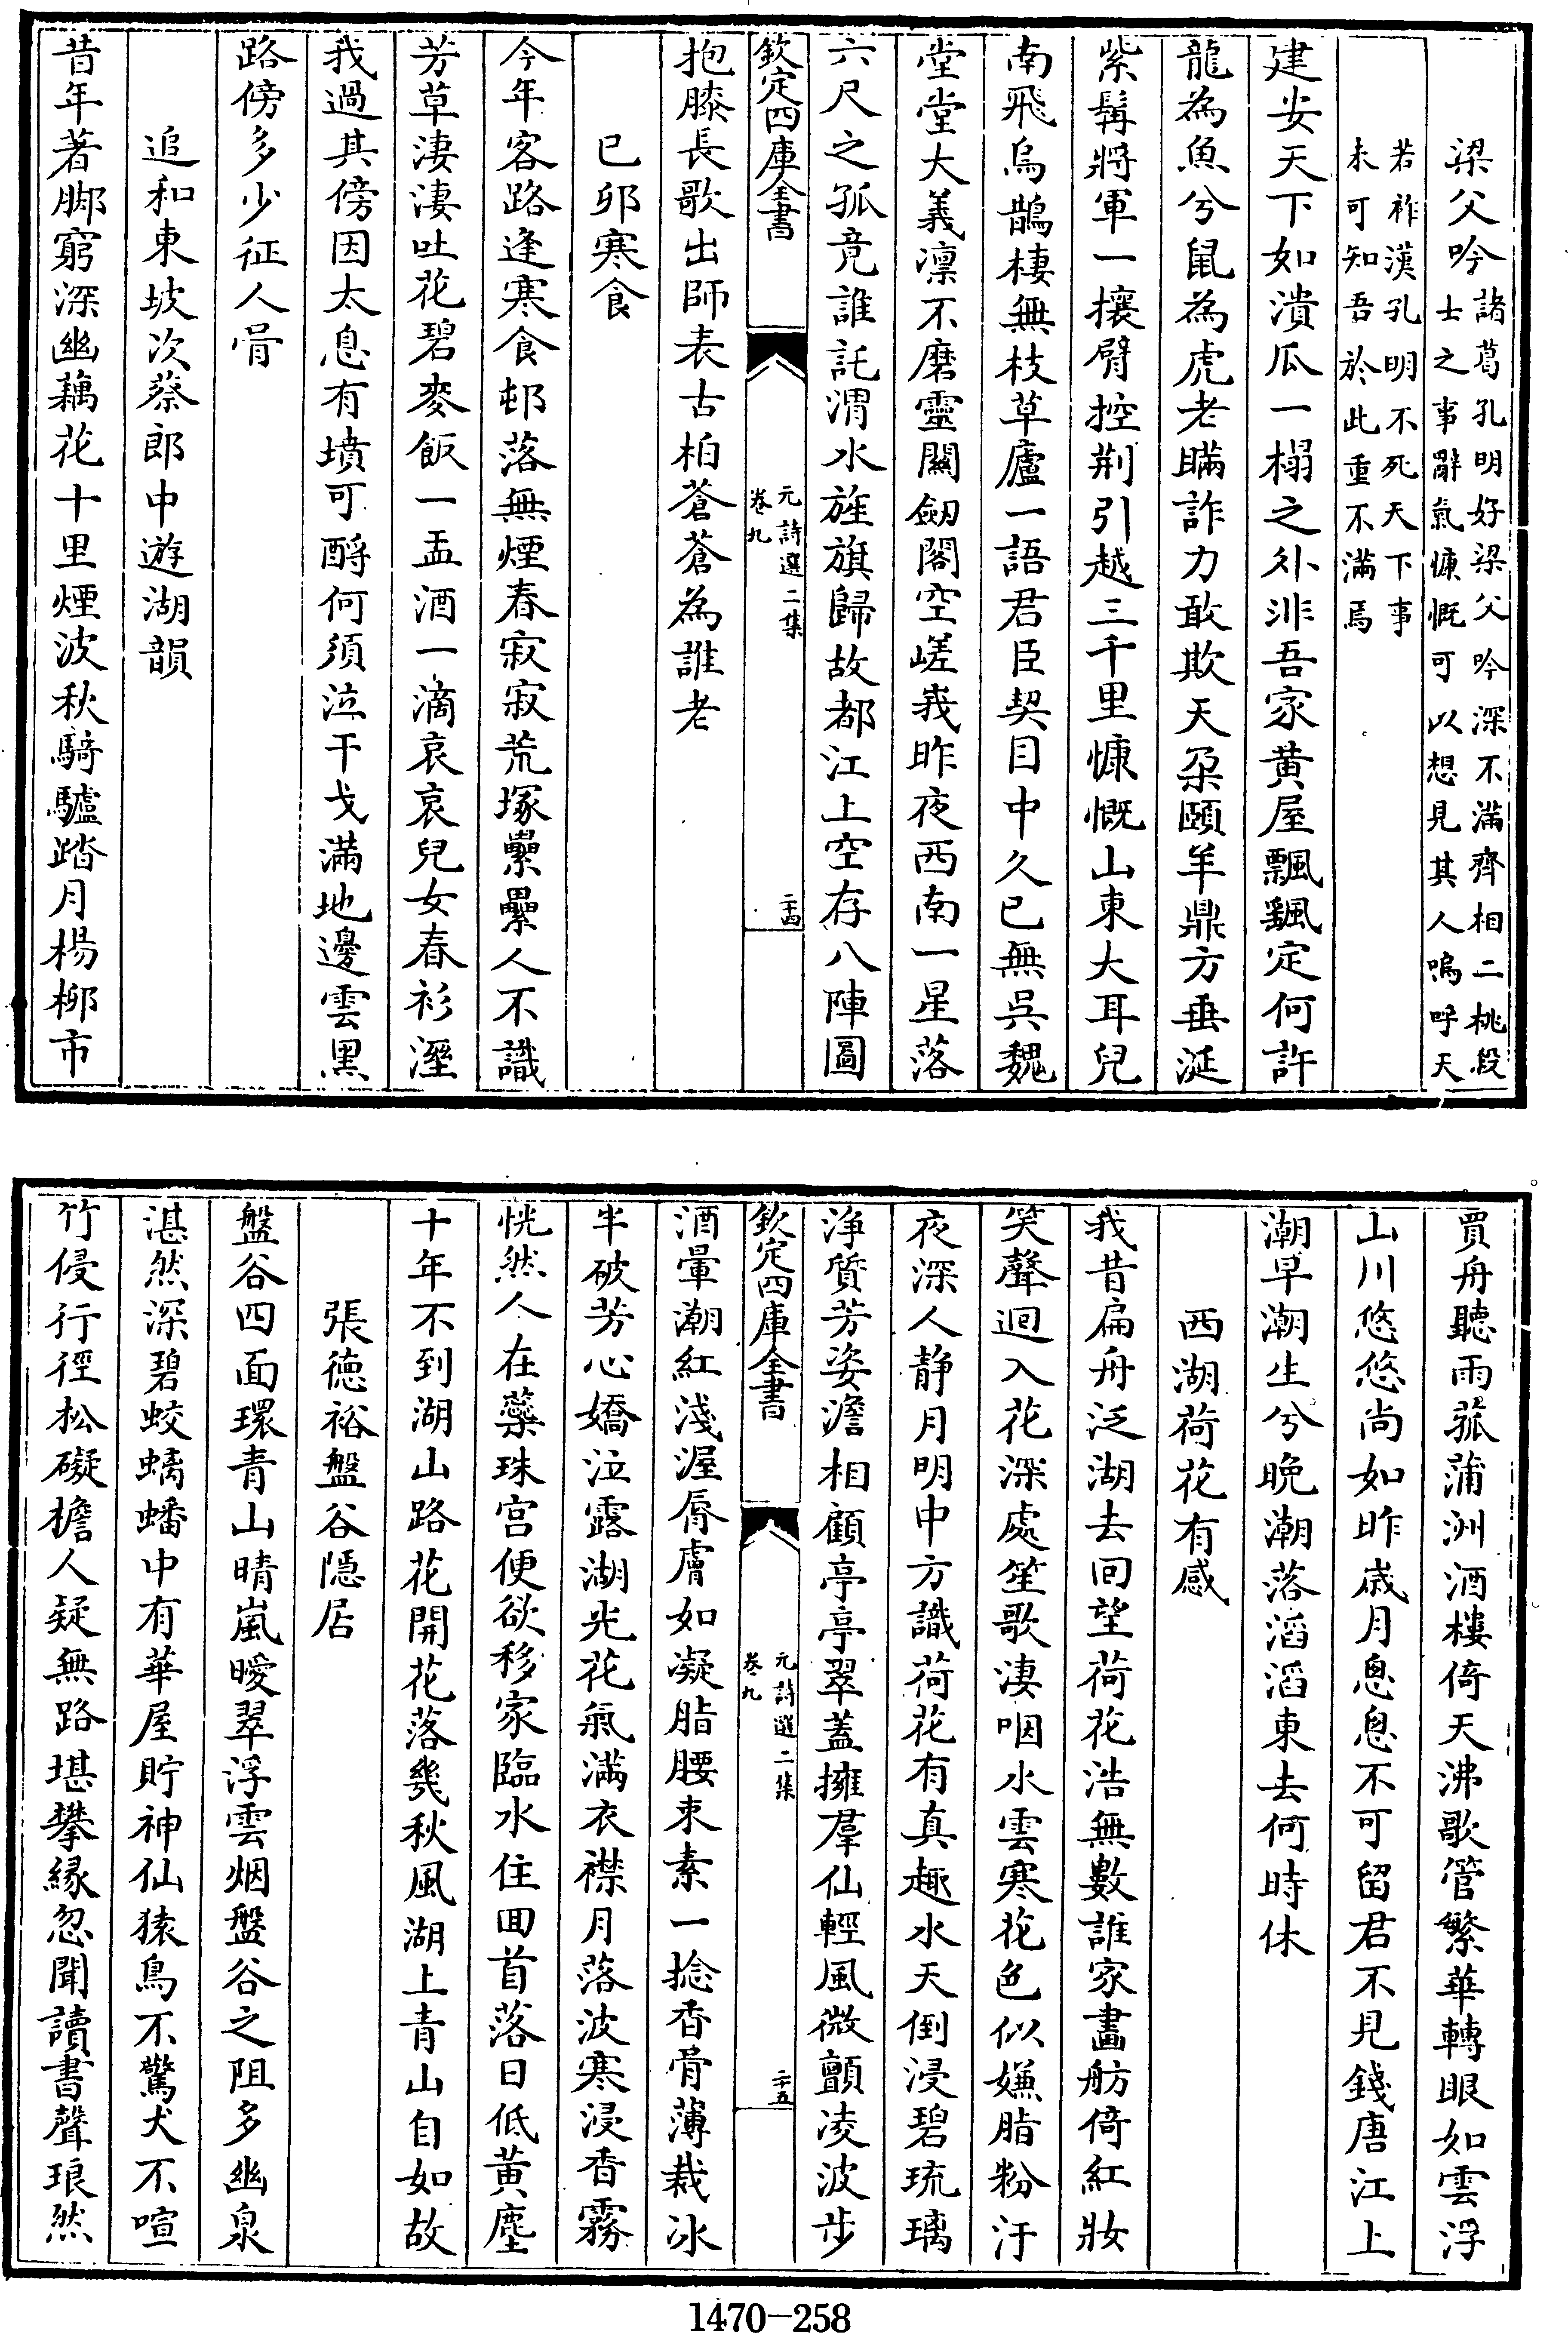 梁父吟諸葛孔明好梁父吟深不滿齊相二桃殺
士之事辭氣慷慨可以想見其人嗚呼天
若祚漢孔明不死天下事
未可知吾於此重不滿焉
建安天下如潰瓜一榻之外非吾家黄屋飄飄定何許
龍為魚兮鼠為虎老瞞詐力敢欺天朶頤羊鼎方垂涎
紫髯將軍一攘臂控荆引越三千里慷慨山東大耳兒
南飛烏鵲棲無枝草廬一語君臣契目中久已無呉魏
堂堂大義凛不磨靈關劒閣空嵯峩昨夜西南一星落
六尺之孤竟誰託渭水旌旗歸故都江上空存八陣圖
欽定四庫全書
元詩選二集
卷九
二十四
抱膝長歌出師表古柏蒼蒼為誰老
已卯寒食
今年客路逢寒食邨落無煙春寂寂荒塚纍纍人不識
芳草淒淒吐花碧麥飯一盂酒一滴哀哀兒女春衫溼
我過其傍因太息有墳可酹何須泣干戈滿地邊雲黒
路傍多少征人骨
追和東坡次蔡郎中遊湖韻
昔年著脚窮深幽藕花十里煙波秋騎驢踏月楊栁市
買舟聽雨菰蒲洲酒樓倚天沸歌管繁華轉眼如雲浮
山川悠悠尚如昨歳月怱怱不可留君不見錢唐江上
潮早潮生兮晩潮落滔滔東去何時休
西湖荷花有感
我昔扁舟泛湖去回望荷花浩無數誰家畫舫倚紅妝
笑聲迴入花深處笙歌淒咽水雲寒花色似嫌脂粉汙
夜深人静月明中方識荷花有真趣水天倒浸碧琉璃
浄質芳姿澹相顧亭亭翠蓋擁羣仙輕風微顫凌波步
欽定四庫全書
元詩選二集
卷九
二十五
酒暈潮紅淺渥脣膚如凝脂腰束素一捻香骨薄裁冰
半破芳心嬌泣露湖光花氣滿衣襟月落波寒浸香霧
恍然人在蘂珠宫便欲移家臨水住囬首落日低黄塵
十年不到湖山路花開花落幾秋風湖上青山自如故
張徳裕盤谷隠居
盤谷四面環青山晴嵐曖翠浮雲烟盤谷之阻多幽泉
湛然深碧蛟螭蟠中有華屋貯神仙猿鳥不驚犬不喧
竹侵行徑松礙檐人疑無路堪攀縁忽聞讀書聲琅然
1470-258